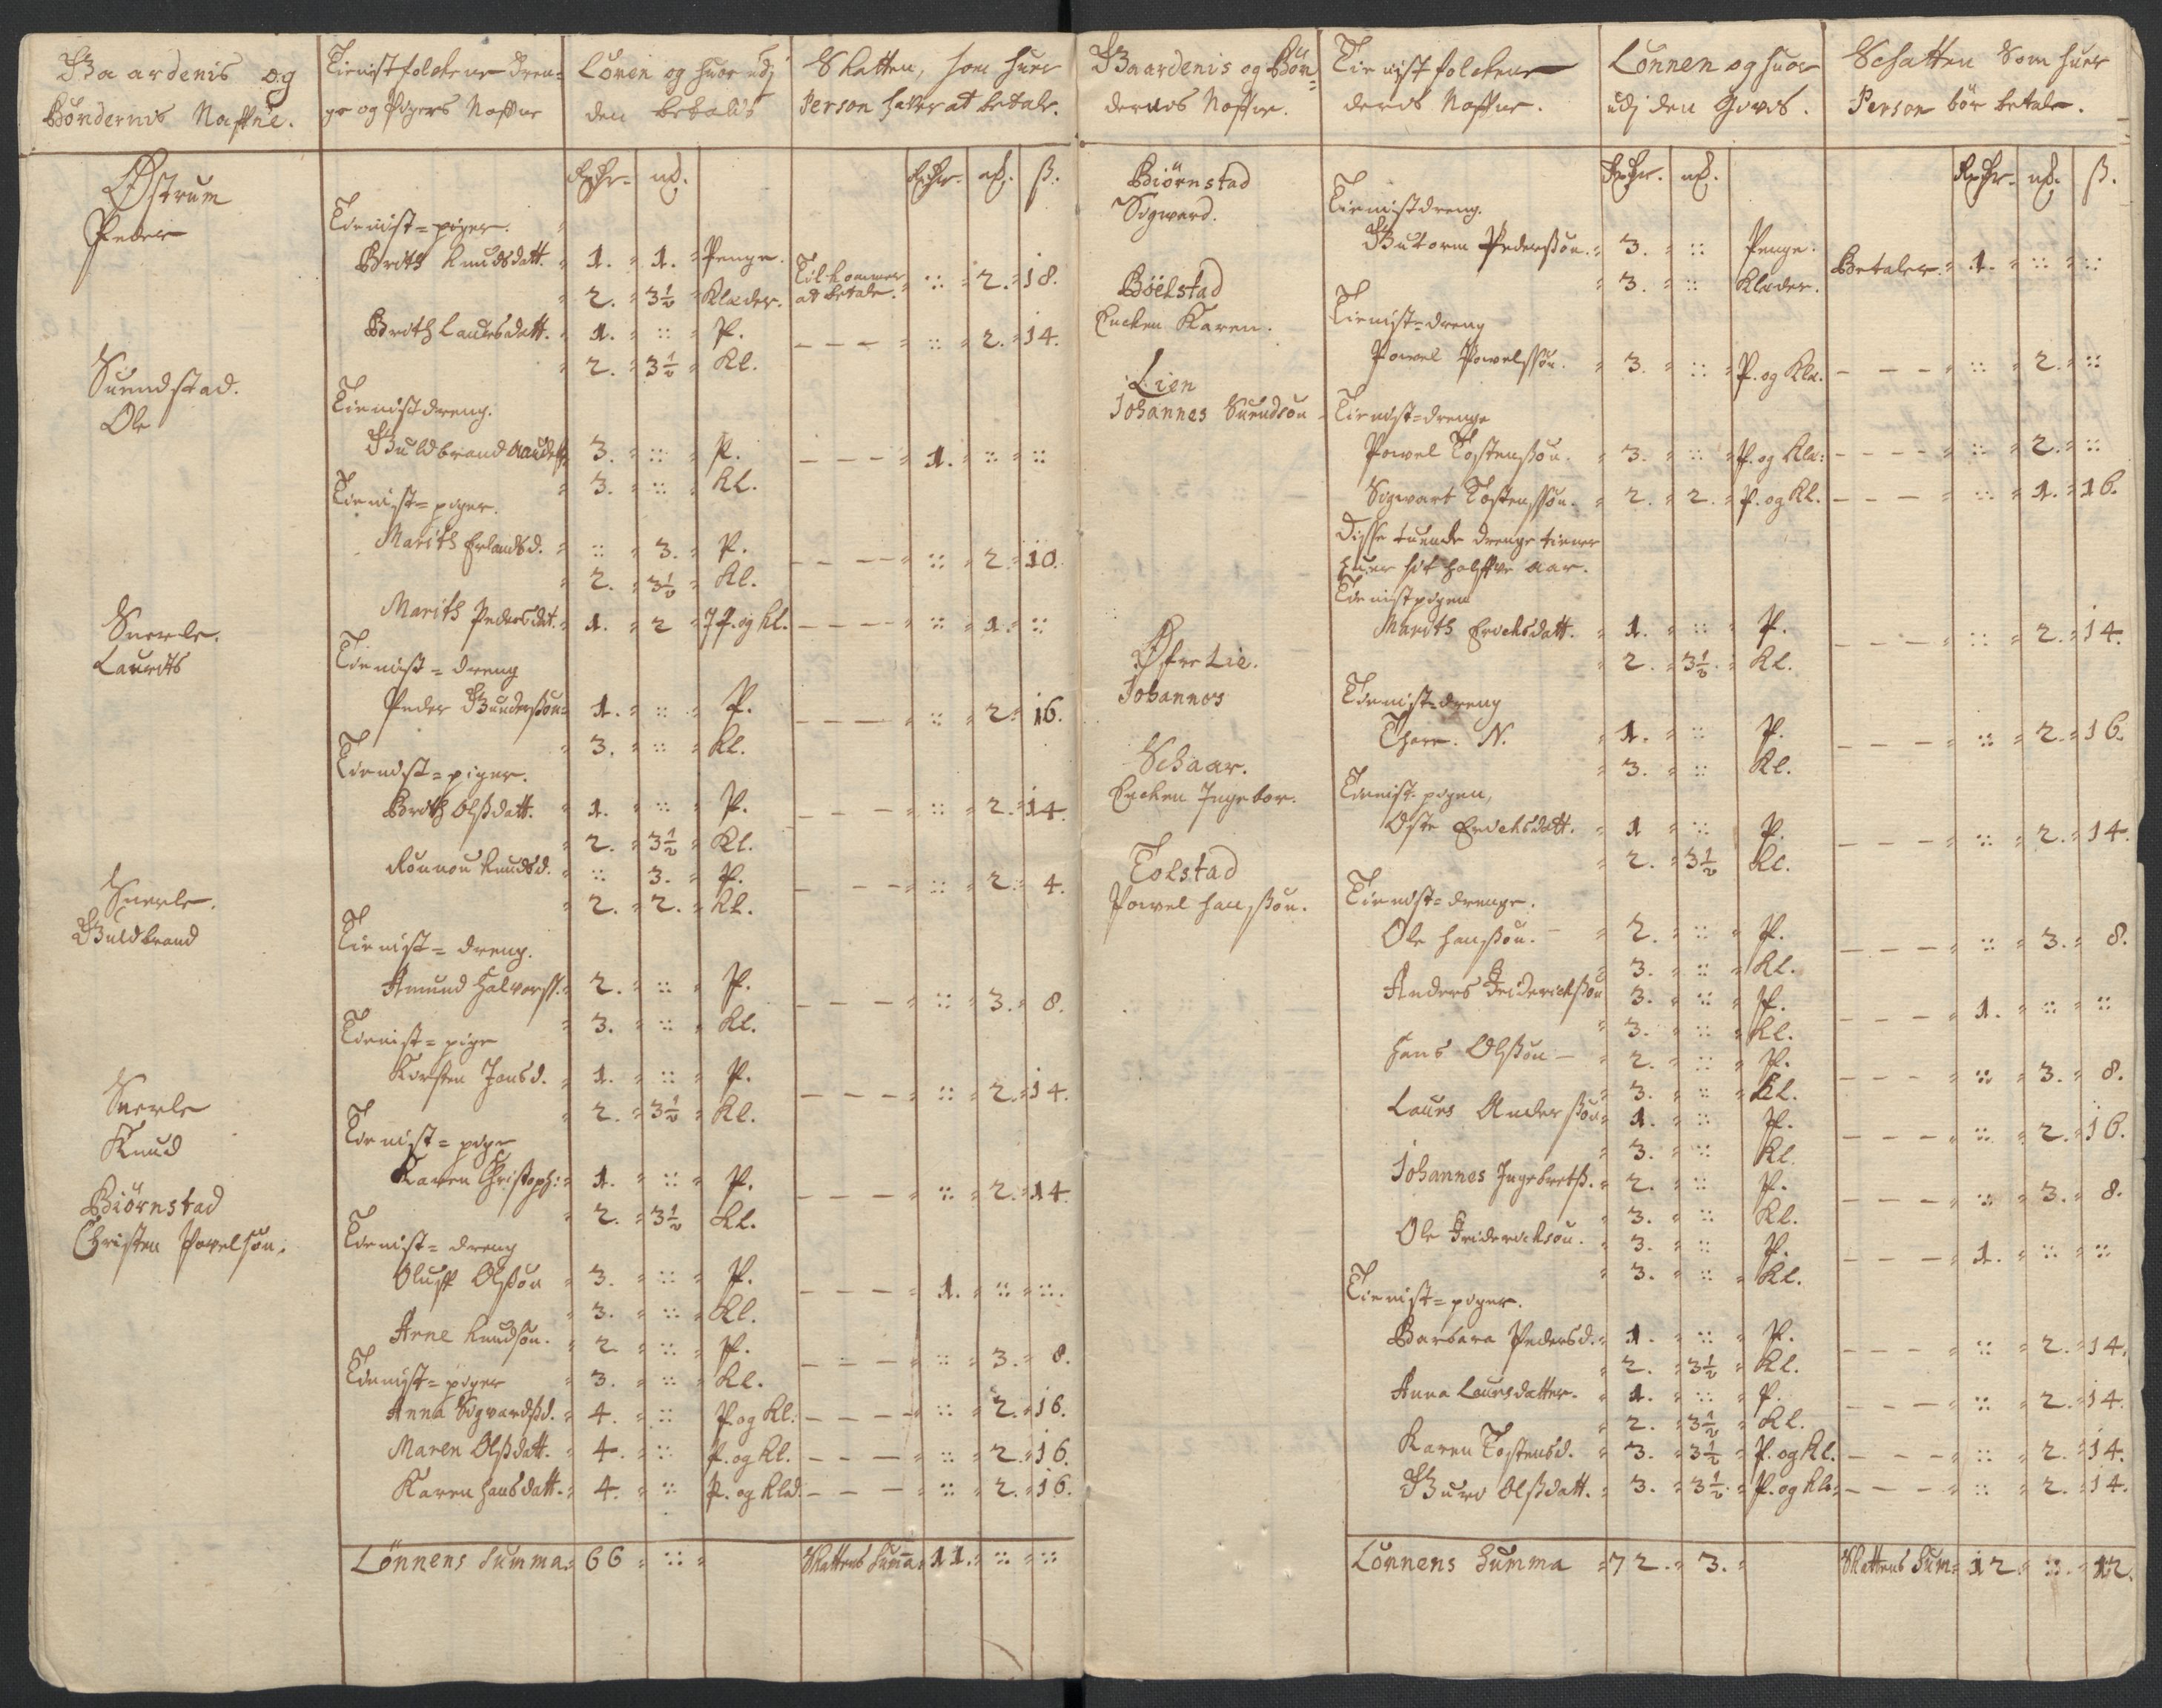 Gaardenis og
Böndernis Naffne.
Tienistfolckene dren-
ge og Pigers Naffne
Lönen og huor udj
den betalis
Skatten, som huer
Person haver at betale.
Rixdr. mk.
Rixdr. mk. ß.
Østrum
Peder
Tienist=piger.
Brith Knudsdatt. 1. 1. Penge.
2. 3½ Klæder. Tilkommer at betale. :: 2. 18.
Brith Lauersdatt. 1. :: P.
2. 3½ Kl. — — — :: 2. 14.
Suendstad.
Ole
Tienistdreng.
Guldbrand 3. :: P.
3. :: Kl. — — — 1. :: ::
Tienist=piger.
Marith Erlandsd. :: 3. P.
2. 3½ Kl. — — — :: 2. 10.
Marith Pedersdat. 1. 2 P. og Kl. — — — :: 1. ::
Snerle.
Laurits
Tienist=dreng
Peder Gunderßon 1. :: P.
3. :: Kl. — — — :: 2. 16.
Tienist=piger.
Brith Olßdatt. 1. :: P.
2. 3½ Kl. — — — :: 2. 14.
Rönnou Knudsd. :: 3. P.
2. 2. Kl. — — — :: 2. 4.
Snerle.
Guldbrand
Tienist=dreng.
Amund Halvorss. 2. :: P.
3. :: Kl. — — — :: 3. 8.
Tienist=pige
Kirsten Jonsd. 1. :: P.
2. 3½ Kl. — — — :: 2. 14.
Snerle
Knud
Tienist=pige
Karen Christoph: 1. :: P.
2. 3½ Kl. — — — :: 2. 14.
Biörnstad
Christen Powelsön.
Tienist=dreng
Oluff Olßon 3. :: P.
3. :: Kl. — — — 1. :: ::
Arne Knudsön. 2. :: P.
3. :: Kl. — — — :: 3. 8.
Tienist=piger
Anna Sigvardßd. 4. :: P. og Kl. — — — :: 2. 16.
Maren Olßdatt. 4. :: P. og Kl. — — — :: 2. 16.
Karen Hansdatt. 4. :: P. og Klæd. — — — :: 2. 16.
Lönnens Summa 66 :: Skattens Suma 11. :: ::
Gaardenis og Bön-
dernis Naffne.
Tienistfolckene
deris Naffne.
Lönnen og huor
udj den Givis.
Schatten Som huer
Person bör betale.
Rixdr. mk.
Rixdr. mk. ß.
Biörnstad
Sigword.
Tienistdreng.
Gutorm Pederssön. 3. :: Penge.
3. :: Klæder. Betaler 1. :: ::
Böelstad
Encken Karen.
Tienist=dreng
Powel Powelssön. 3. :: P. og Klæ. — — — :: 2. ::
Lien
Johannes Suendsön
Tienist=drenge
Powel Tostenßön. 3. :: P. og Klæ: — — — :: 2. ::
Sigvart Tostensßön. 2. 2. P. og Kl. — — — :: 1. 16.
Disse tuende drenge tiener
huer sit halffve aar.
Tienistpigen
Marith Erichsdatt. 1. :: P.
2. 3½ Kl. — — — :: 2. 14.
Øfre Lie.
Johannes
Tienist=dreng
Thore. N. 1. :: P.
3. :: Kl. — — — :: 2. 16.
Schaar.
Encken Ingebor.
Tienist pigen,
Oste Erichsdatt. 1 :: P.
2. 3½ Kl. — — — :: 2. 14.
Tolstad
Powel Hansßön.
Tienist=drenge.
Ole Hansßön. 2. :: P.
3. :: Kl. — — — :: 3. 8.
Anders Friderichßön 3. :: P.
3. :: Kl. — — — 1. :: ::
Hans Olßön 2. :: P.
3. :: Kl. — — — :: 3. 8.
Laurs Anderßön 1. :: P.
3. :: Kl. — — — :: 2. 16.
Johannes Ingebretß. 2. :: P.
3. :: Kl. — — — :: 3. 8.
Ole Friderichsön. 3. :: P.
3. :: Kl. — — — 1. :: ::
Tienist=piger.
Barbara Pedersd. 1. :: P.
2. 3½ Kl. — — — :: 2. 14.
Anna Laursdatter. 1. :: P.
2. 3½ Kl. — — — :: 2. 14.
Karen Tostensd. 3. 3½ P. og Kl. — — — :: 2. 14.
Guro Olßdatt. 3. 3½ P. og Klæ — — — :: 2. 14.
Lönnens Summa 72. 3. Skattens Sum 12. :: 12.